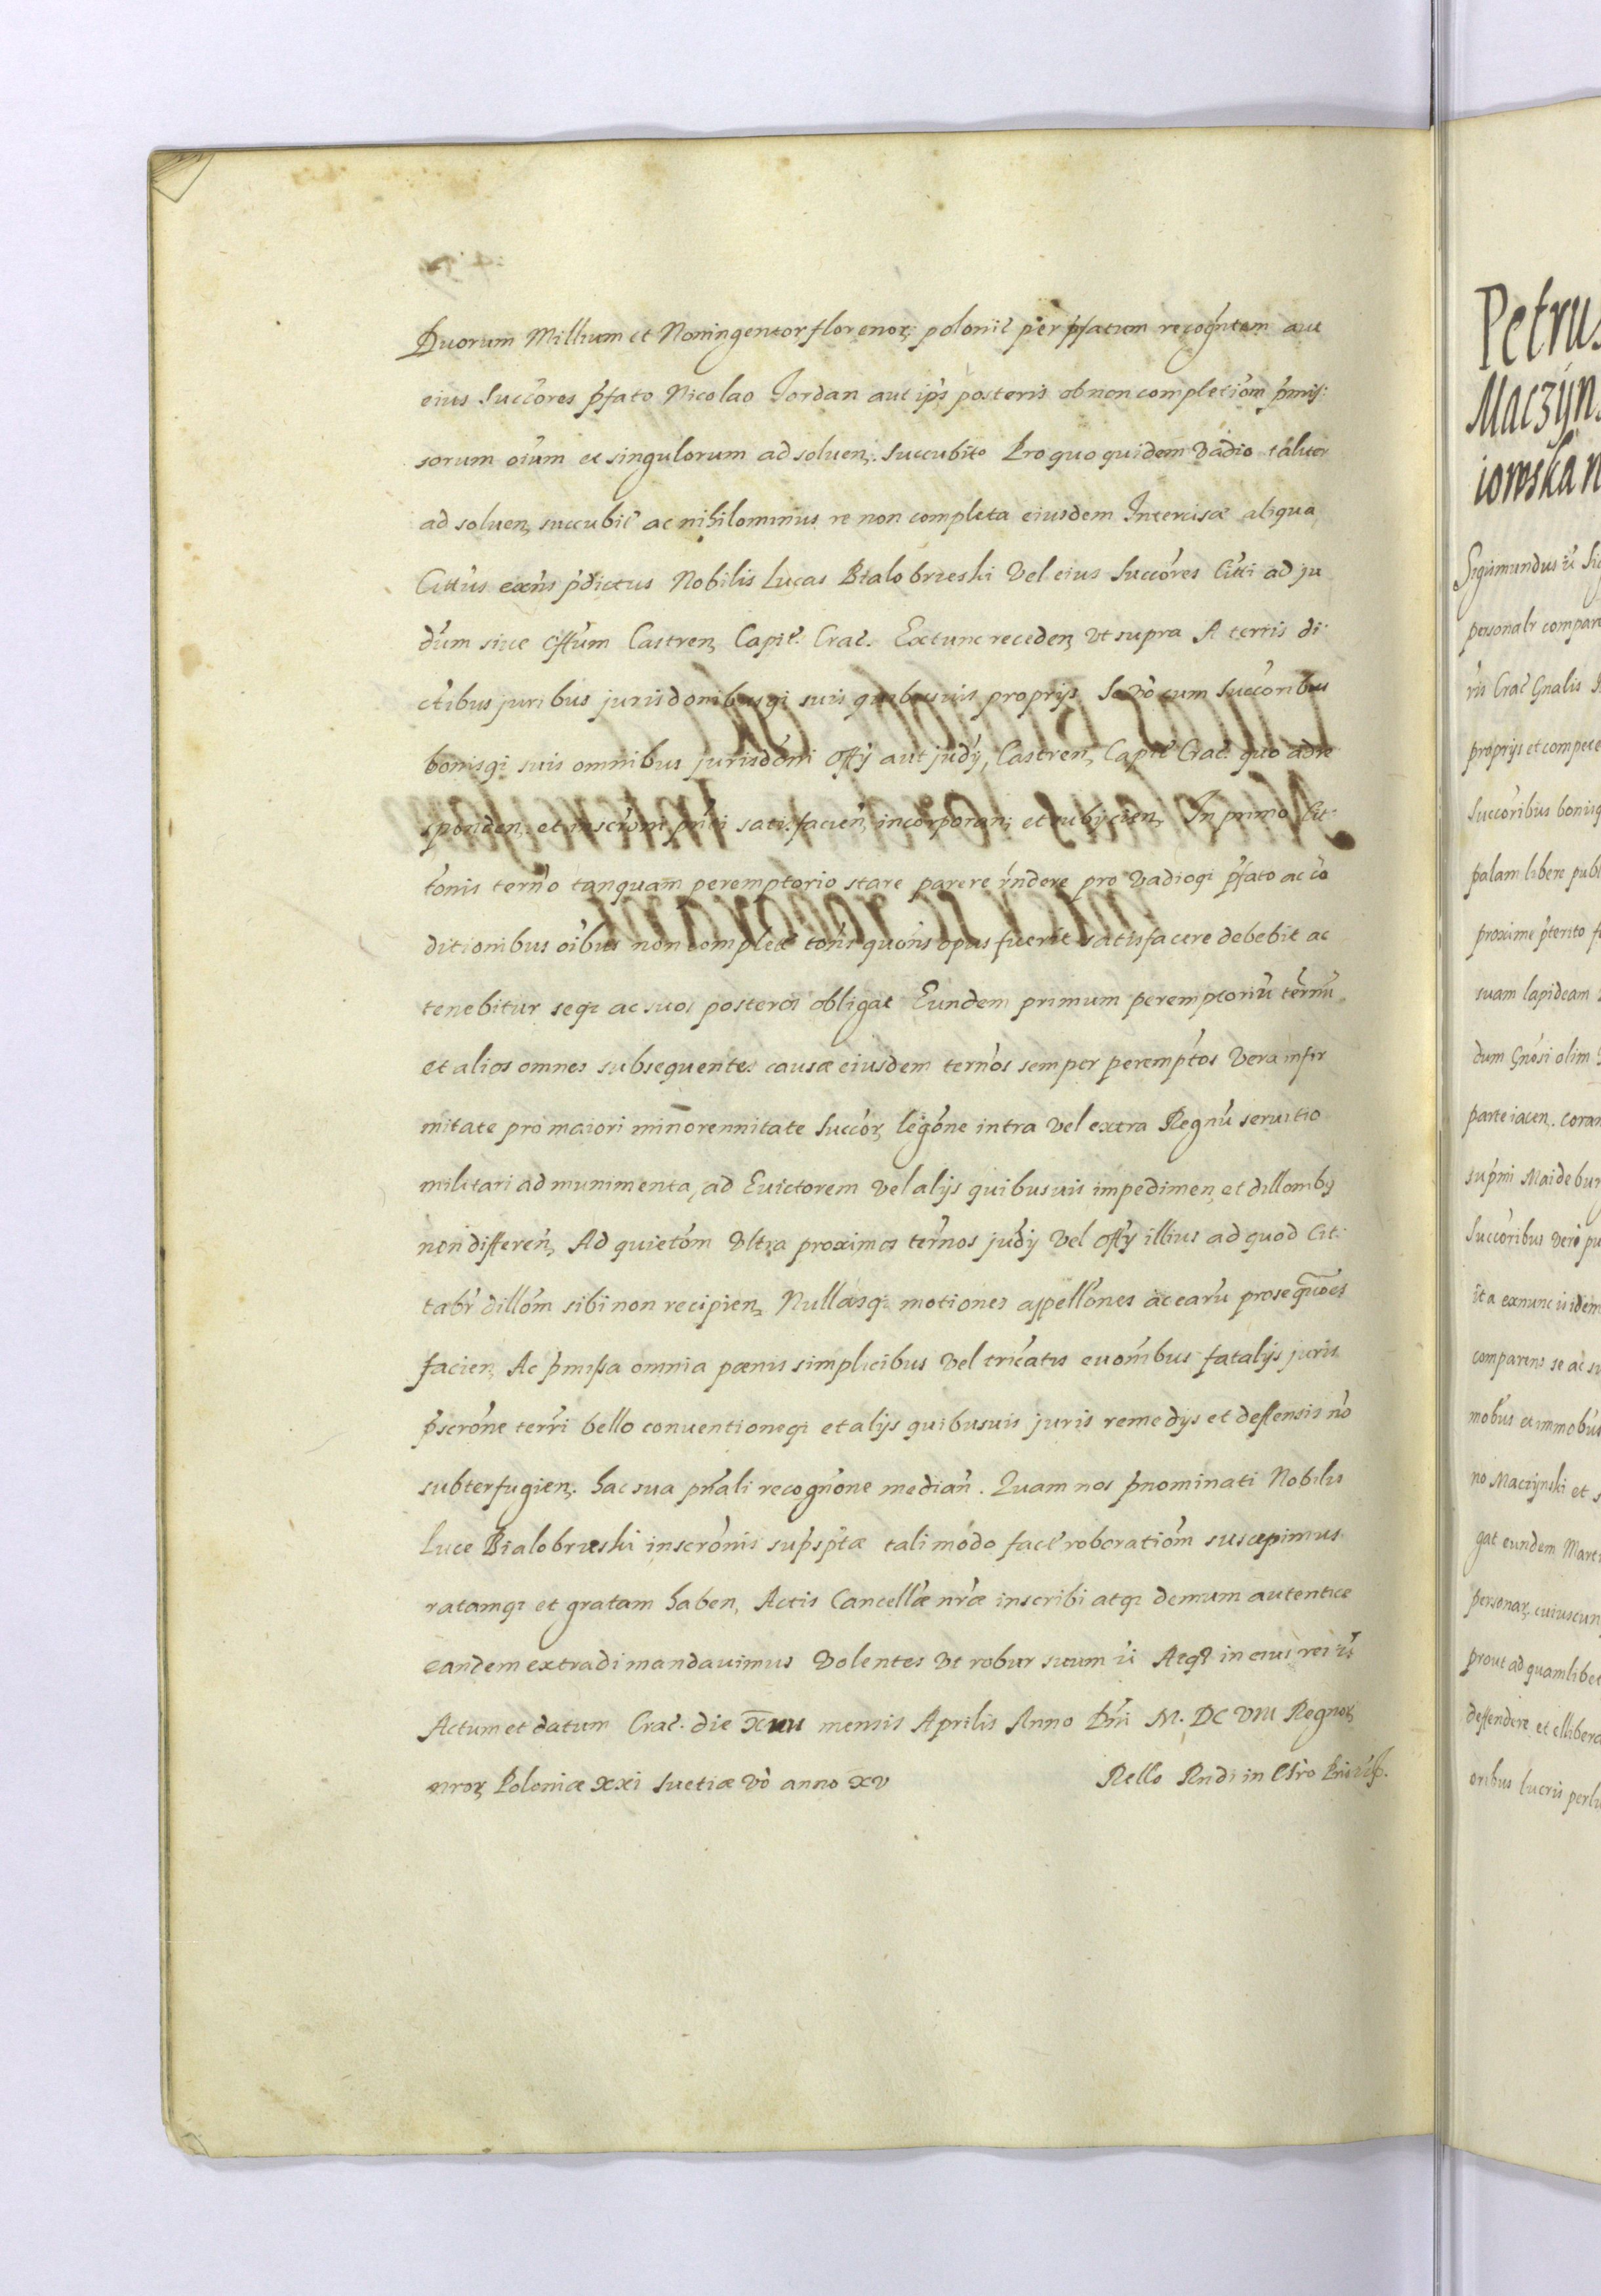 Duorum Millium et Noningentor florenor; polonic per pfatum recogntem aut
eius Succores pfato Nicolao Jordan aut ips posteris ob non completiom pmis:
sorum oium et singulorum ad soluen; succubito Pro quo quidem Vadio taliter
ad soluen, succubit ac nihilominus re non completa eiusdem Intercisæ aliqua
Cittus exns pdictus Nobilis Lucas Bialobrzeski Vel eius Succores Citti ad ju
dum siue offum Castren, Capit. Crac. Extunc receden, Vt supra A terris di
ctibus juribus jurisdonibusqi suis quibusuis proprijs Se Vo cum Succoribus
bonisqi suis omnibus jurisdoni offy aut judy, Castren, Capit Crac. quo ad re
sponden, et inscriom pnti satisfacien, incorporan; et subijcien, In primo Cit
tonis terno tanquam peremptorio stare parere rndere pro Vadioqi pfato ac co
ditionibus oibus non complet tots quots opus fuerit satisfacere debebit ac
tenebitur seqi ac suos posteros obligat Eundem primum peremptoriu ternu
et alios omnes subsequentes causæ eiusdem ternos semper peremptos Vera infir
mitate pro maiori minorennitate Succor, legone intra Vel extra Regnu seruitio
militari ad munimenta, ad Euictorem Vel alijs quibusuis impedimen, et dillombȝ
non differen, Ad quietom Vltra proximos ternos judy Vel offy illius ad quod Cit:
tabr dillom sibi non recipien, Nullasqi motiones appellones ac earu prosequoes
facien, Ac pmissa omnia pænis simplicibus Vel tricatis euombus fatalijs juris
pscrone terri bello conuentioneqi et alijs quibusuis juris remedijs et deffensis no
subterfugien, hac sua pnali recognone median. Quam nos pnominati Nobilis
Luce Bialobrzeski inscronis supsptæ tali modo fact roboratiom suscepimus
ratamqi et gratam haben, Actis Cancellæ nræ inscribi atqi demum autentice
eandem extradi mandauimus Volentes Vt robur suum
Actum et datum Crac. die mensis Aprilis Anno Dni M. DC VIII Regnor,
nror, Poloniæ XXI Suetiæ Vo anno XV
Petrus
Maczyn
iowska n
Sigismundus
personalr compar
ris Crac Gnalis
proprijs et compete
Succoribus bonisq
palam libere publ
proxime pterito
suam lapideam
dum Gnosi olim
parte iacen. coram
supmi Maidebur
Succoribus Vero
ita exnunc is idem
comparens se ac su
mobus et immobus
no Maczynski et s
gat eundem Mart
personar, cuiuscun
prout ad quamlibet
deffendere et elibera
oribus lucris perlu